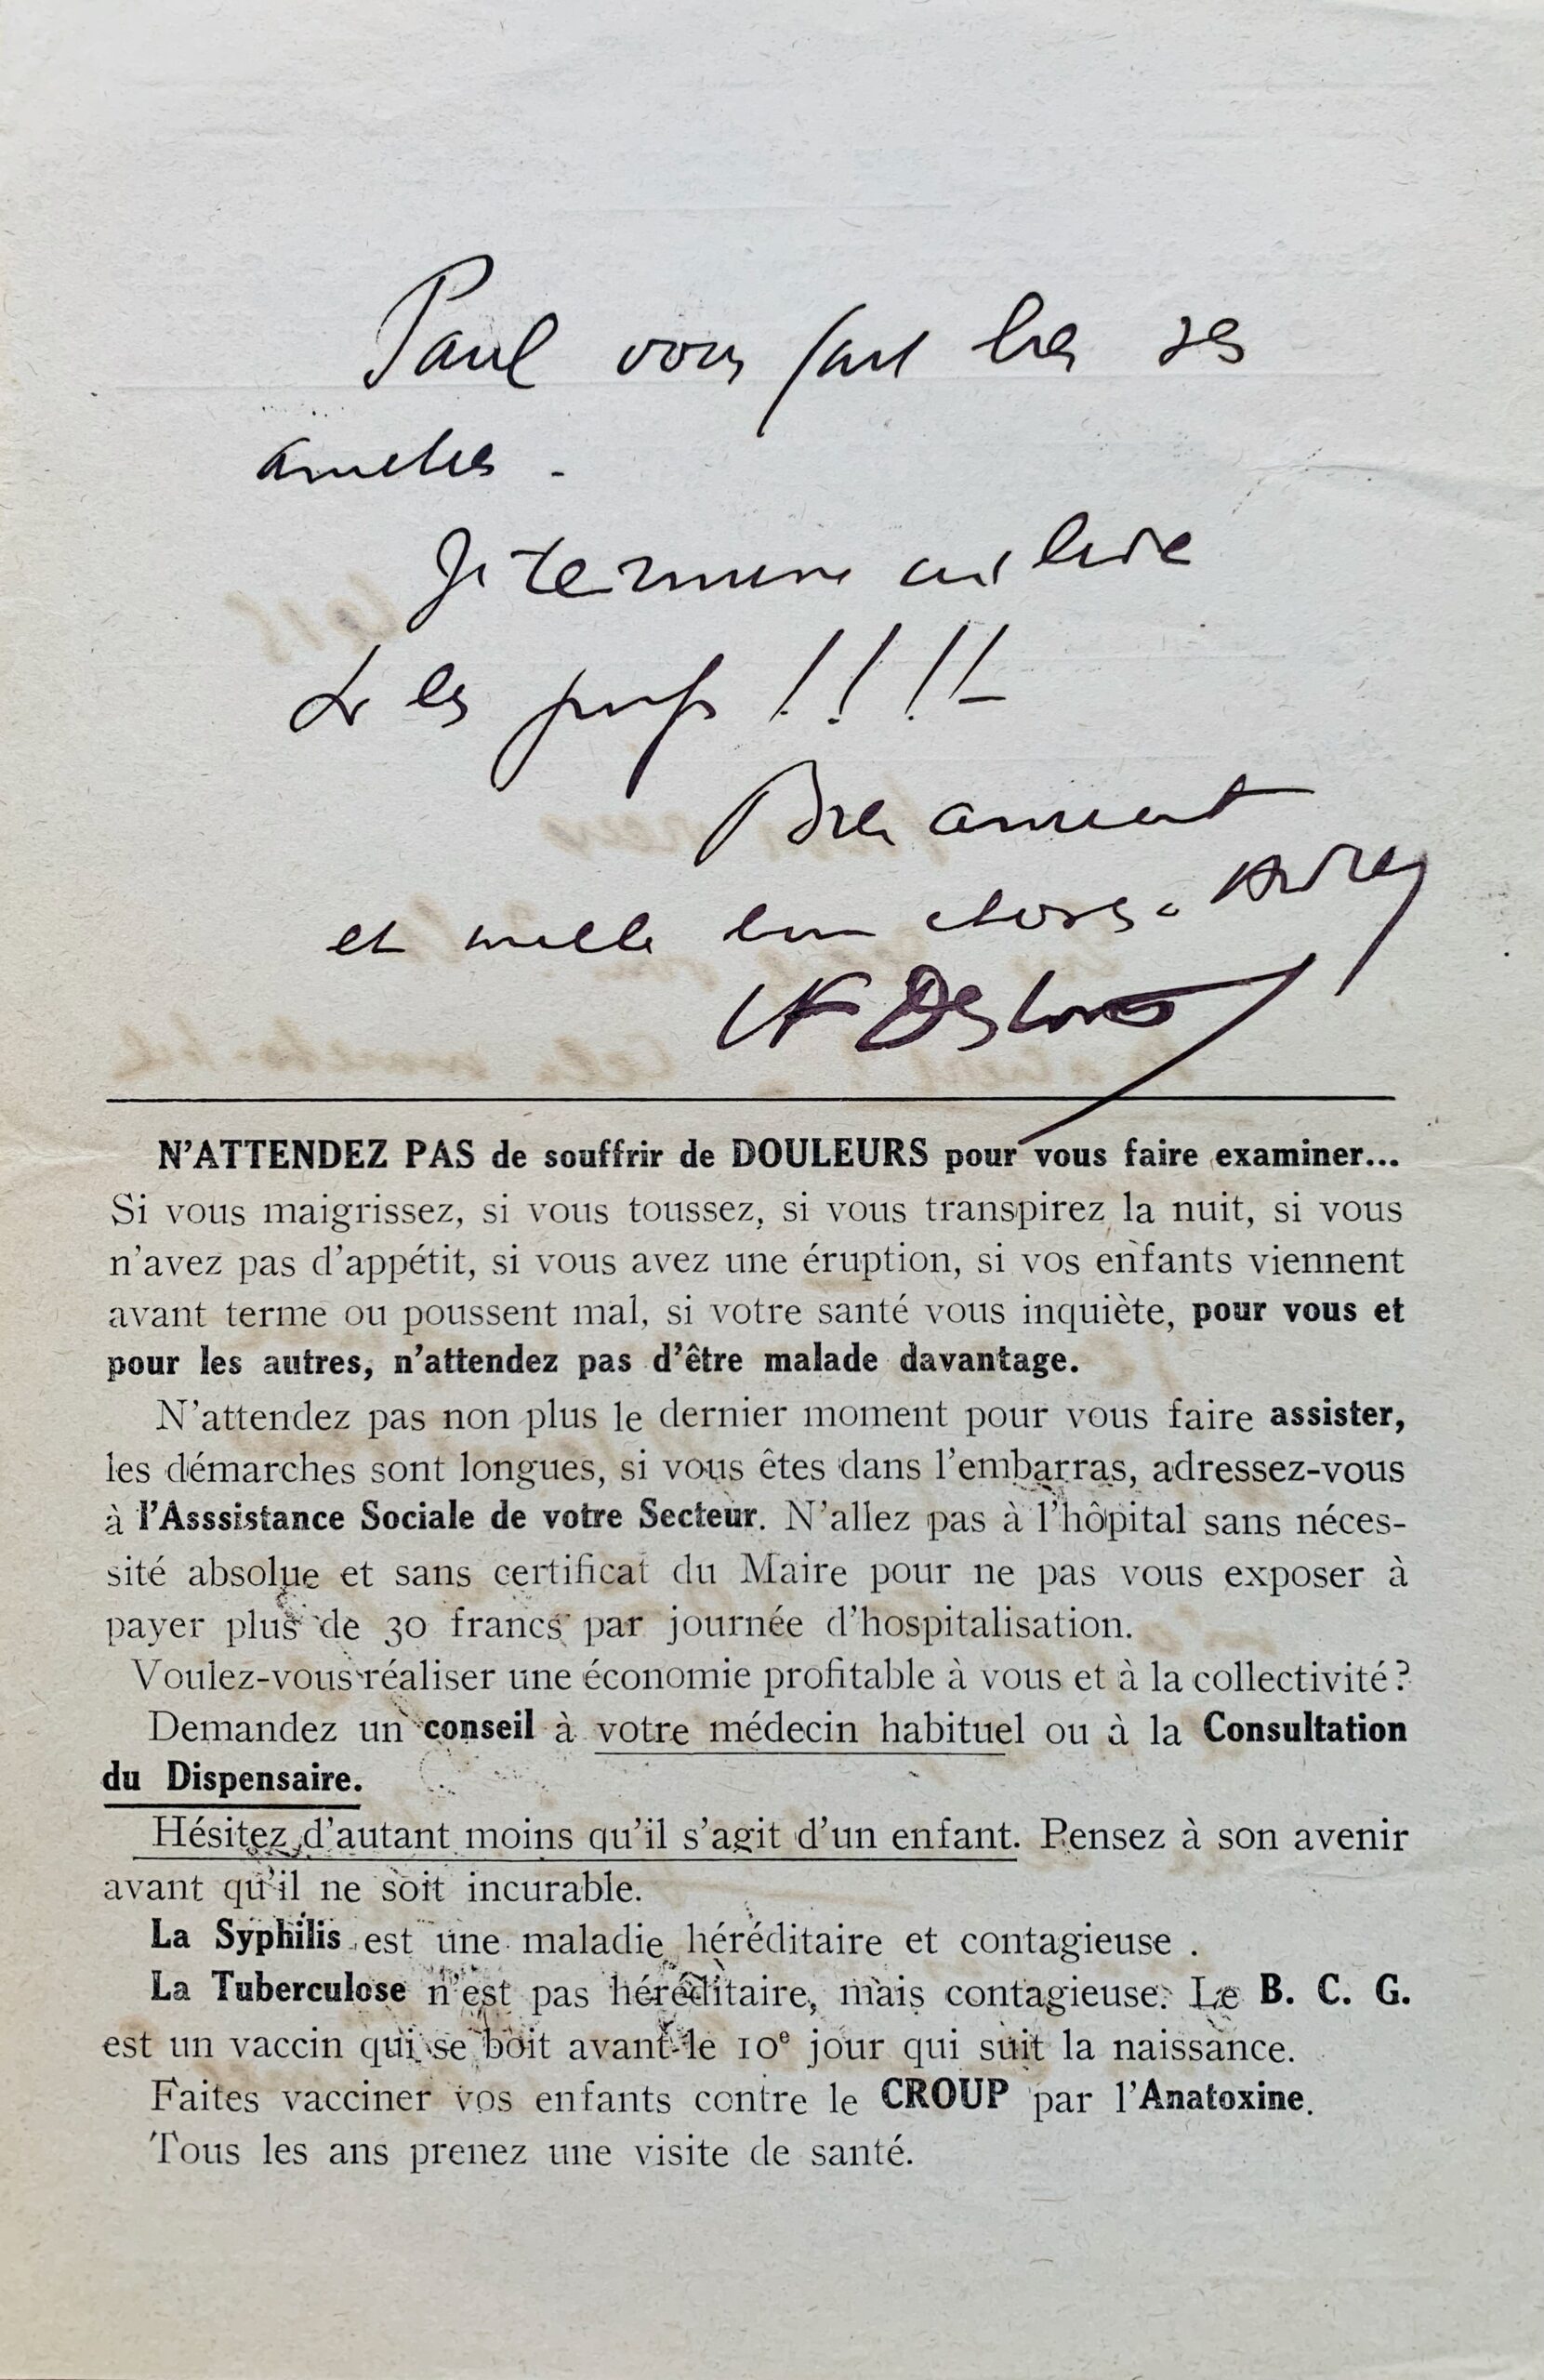 Paul vous fait bes ses
amitiés.
Je termine
les !!!!
Bien amicalement
et mille bonnes choses à
LF Destouches
N'ATTENDEZ PAS de souffrir de DOULEURS pour vous faire examiner...
Si vous maigrissez, si vous toussez, si vous transpirez la nuit, si vous
n'avez pas d'appétit, si vous avez une éruption, si vos enfants viennent
avant terme ou poussent mal, si votre santé vous inquiète, pour vous et
pour les autres, n'attendez pas d'être malade davantage.
N'attendez pas non plus le dernier moment pour vous faire assister,
les démarches sont longues, si vous êtes dans l'embarras, adressez-vous
à l'Asssistance Sociale de votre Secteur. N'allez pas à l'hôpital sans néces-
sité absolue et sans certificat du Maire pour ne pas vous exposer à
payer plus de 30 francs par journée d'hospitalisation.
Voulez-vous réaliser une économie profitable à vous et à la collectivité ?
Demandez un conseil à votre médecin habituel ou à la Consultation
du Dispensaire.
Hésitez d'autant moins qu'il s'agit d'un enfant. Pensez à son avenir
avant qu'il ne soit incurable.
La Syphilis est une maladie héréditaire et contagieuse .
La Tuberculose n'est pas héréditaire, mais contagieuse. Le B. C. G.
est un vaccin qui se boit avant le 10e jour qui suit la naissance.
Faites vacciner vos enfants contre le CROUP par l'Anatoxine.
Tous les ans prenez une visite de santé.